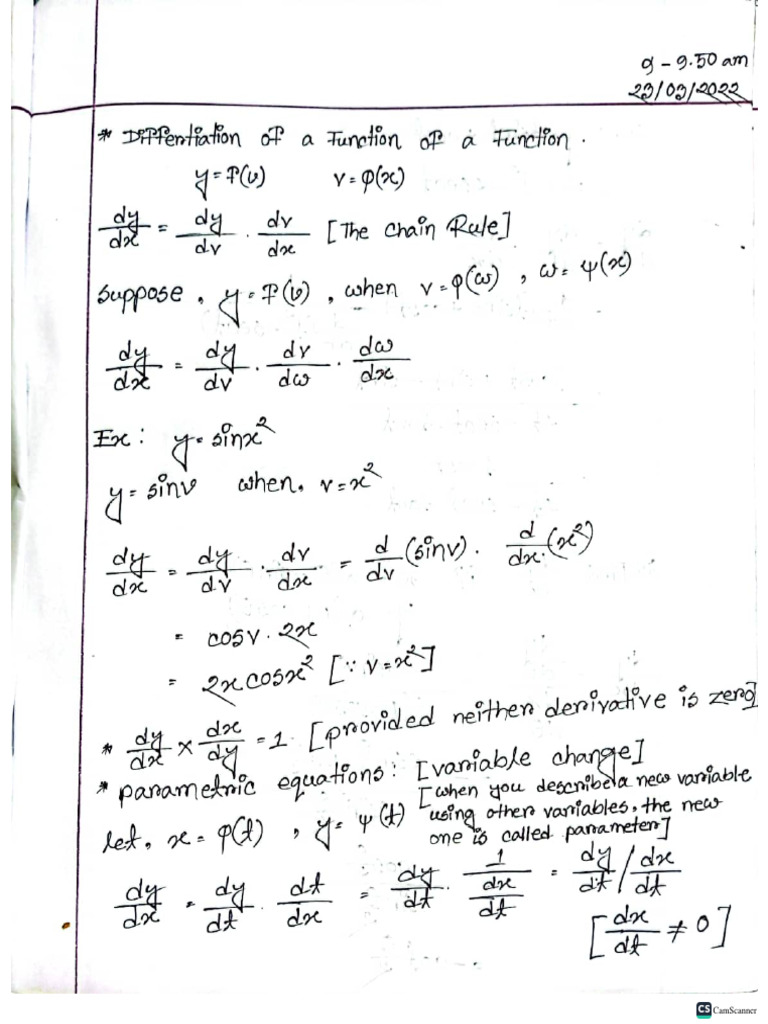 9 - 9.50 am
23/03/2022
* Differtiation of a Function of a Function.
y = f(v)  v = φ(x)
dy/dx = dy/dv . dv/dx [The Chain Rule]
Suppose, y = f(v), when v = φ(ω), ω = ψ(x)
dy/dx = dy/dv . dv/dω . dω/dx
Ex: y = sinx²
y = sinv when, v = x²
dy/dx = dy/dv . dv/dx = d/dv (sinv) . d/dx (x²)
= cosv . 2x
= 2x cosx² [∵ v = x²]
* dy/dx × dx/dy = 1. [provided neither derivative is zero]
* parametric equations: [variable change]
[when you describe a new variable
let, x = φ(t), y = ψ(t) using other variables, the new
one is called parameter]
dy/dx = dy/dt . dt/dx = dy/dt . 1/(dx/dt) = dy/dt / dx/dt
[dx/dt ≠ 0]
CS CamScanner